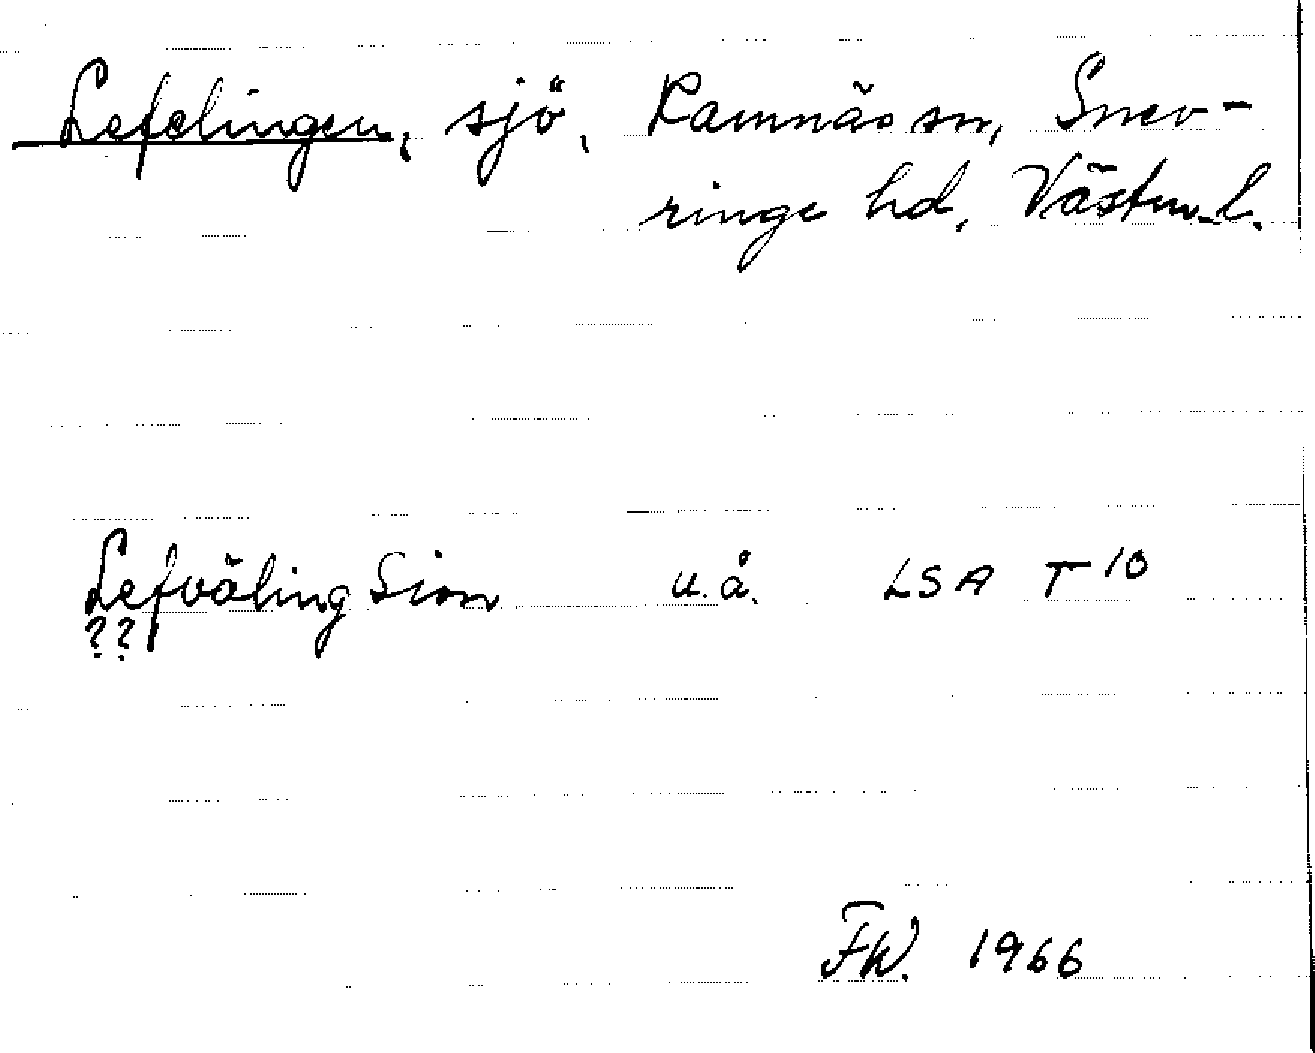 Lefelingen, sjö, Ramnäs sn, Snev-
ringe hd, Västm.l.
Lefväling Sion u.å. LSA T 10
??
FW. 1966